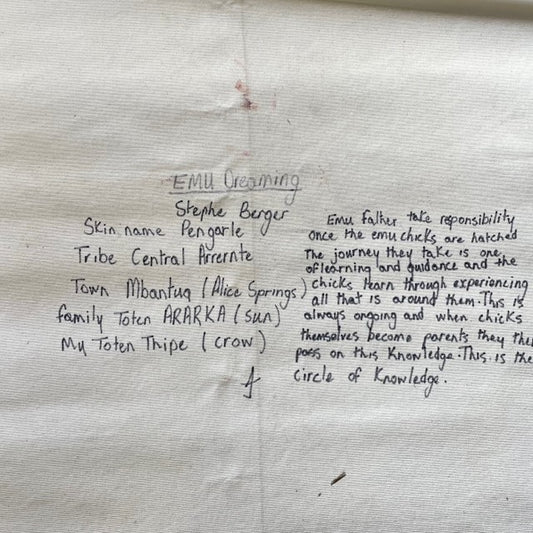 EMU Dreaming
Stephe Berger
Skin name Pengarle
Tribe Central Arrernte
Town Mbantua (Alice Springs)
family Toten ARARKA (sun)
My Toten Thipe (crow)
Emu father take responsibility
Once the emu chicks are hatched
The journey they take is one
of learning and guidance and the
chicks learn through experiencing
all that is around them. This is
always ongoing and when chicks
themselves become parents they
pass on this Knowledge. This is the
Circle of Knowledge.